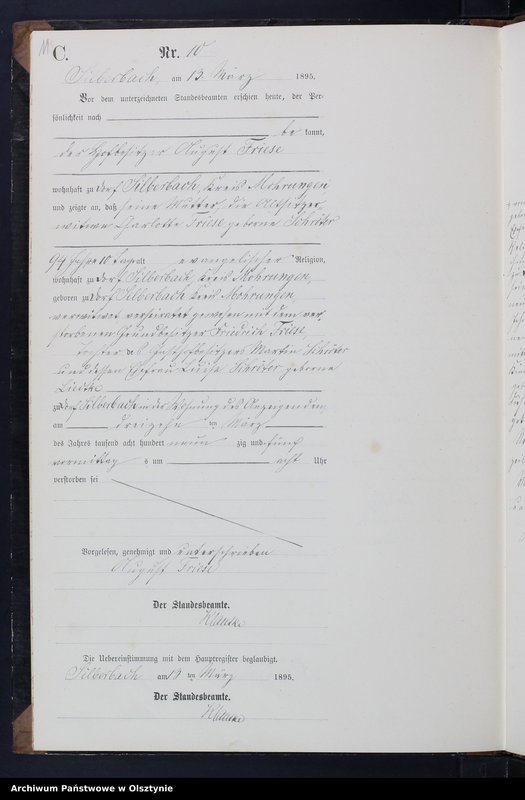 C.
Nr. 10
Silberbach, am 13 März 1895.
Vor dem unterzeichneten Standesbeamten erschien heute, der Per-
sönlichkeit nach
be kannt,
der Hofbesitzer August Friese
wohnhaft zu Dorf Silberbach, Kreis Mohrungen
und zeigte an, daß seine Mutter, die Altsitzer
witwe Charlotte Friese geborne Schröter
94 Jahre 10 Tage alt evangelischer Religion,
wohnhaft zu Dorf Silberbach, Kreis Mohrungen,
geboren zu Dorf Silberbach Kreis Mohrungen,
verwitwet verheiratet gewesen mit dem ver-
storbenen Grundbesitzer Friedrich Friese,
Tochter des Hofbesitzers Martin Schröter
und dessen Ehefrau Luise Schröter geborne
Liedtke
zu Dorf Silberbach in der Wohnung des Anzeigenden
am dreizehn ten März
des Jahres tausend acht hundert neun zig und fünf
vormittag s um acht Uhr
verstorben sei
Vorgelesen, genehmigt und unterschrieben
August Friese
Der Standesbeamte.
Die Uebereinstimmung mit dem Hauptregister beglaubigt.
Silberbach am 13 ten März 1895.
Der Standesbeamte.
Archiwum Państwowe w Olsztynie